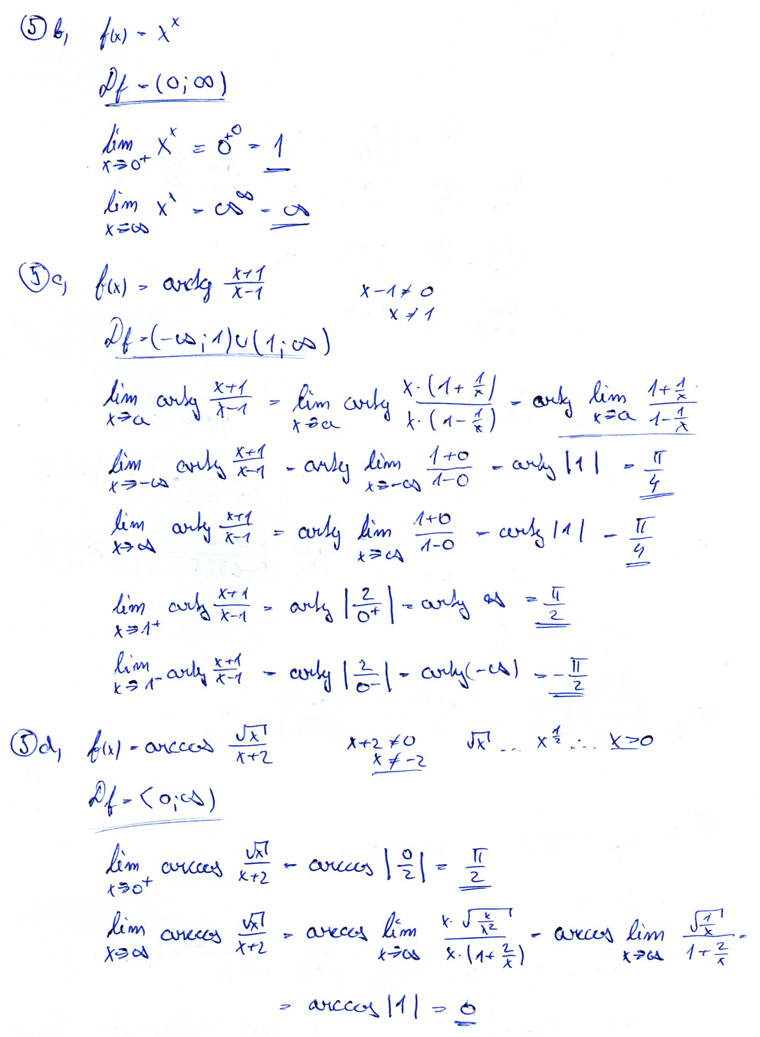 ⑤ b, f(x) = x^x
Df = (0; ∞)
lim x→0⁺ x^x = 0^{+0} = 1
lim x→∞ x^x = ∞^∞ = ∞
⑤ c, f(x) = arctg (x+1)/(x-1) x-1 ≠ 0
x ≠ 1
Df = (-∞; 1) ∪ (1; ∞)
lim x→a arctg (x+1)/(x-1) = lim x→a arctg (x·(1+1/x))/(x·(1-1/x)) = arctg lim x→a (1+1/x)/(1-1/x)
lim x→-∞ arctg (x+1)/(x-1) = arctg lim x→-∞ (1+0)/(1-0) = arctg |1| = π/4
lim x→∞ arctg (x+1)/(x-1) = arctg lim x→∞ (1+0)/(1-0) = arctg |1| = π/4
lim x→1⁺ arctg (x+1)/(x-1) = arctg |2/0⁺| = arctg ∞ = π/2
lim x→1⁻ arctg (x+1)/(x-1) = arctg |2/0⁻| = arctg (-∞) = -π/2
⑤ d, f(x) = arccos √x/(x+2) x+2 ≠ 0 √x ... x^{1/2} ... x≥0
x ≠ -2
Df = <0; ∞)
lim x→0⁺ arccos √x/(x+2) = arccos |0/2| = π/2
lim x→∞ arccos √x/(x+2) = arccos lim x→∞ (x·√(x/x²))/(x·(1+2/x)) = arccos lim x→∞ √(1/x)/(1+2/x) =
= arccos |1| = 0